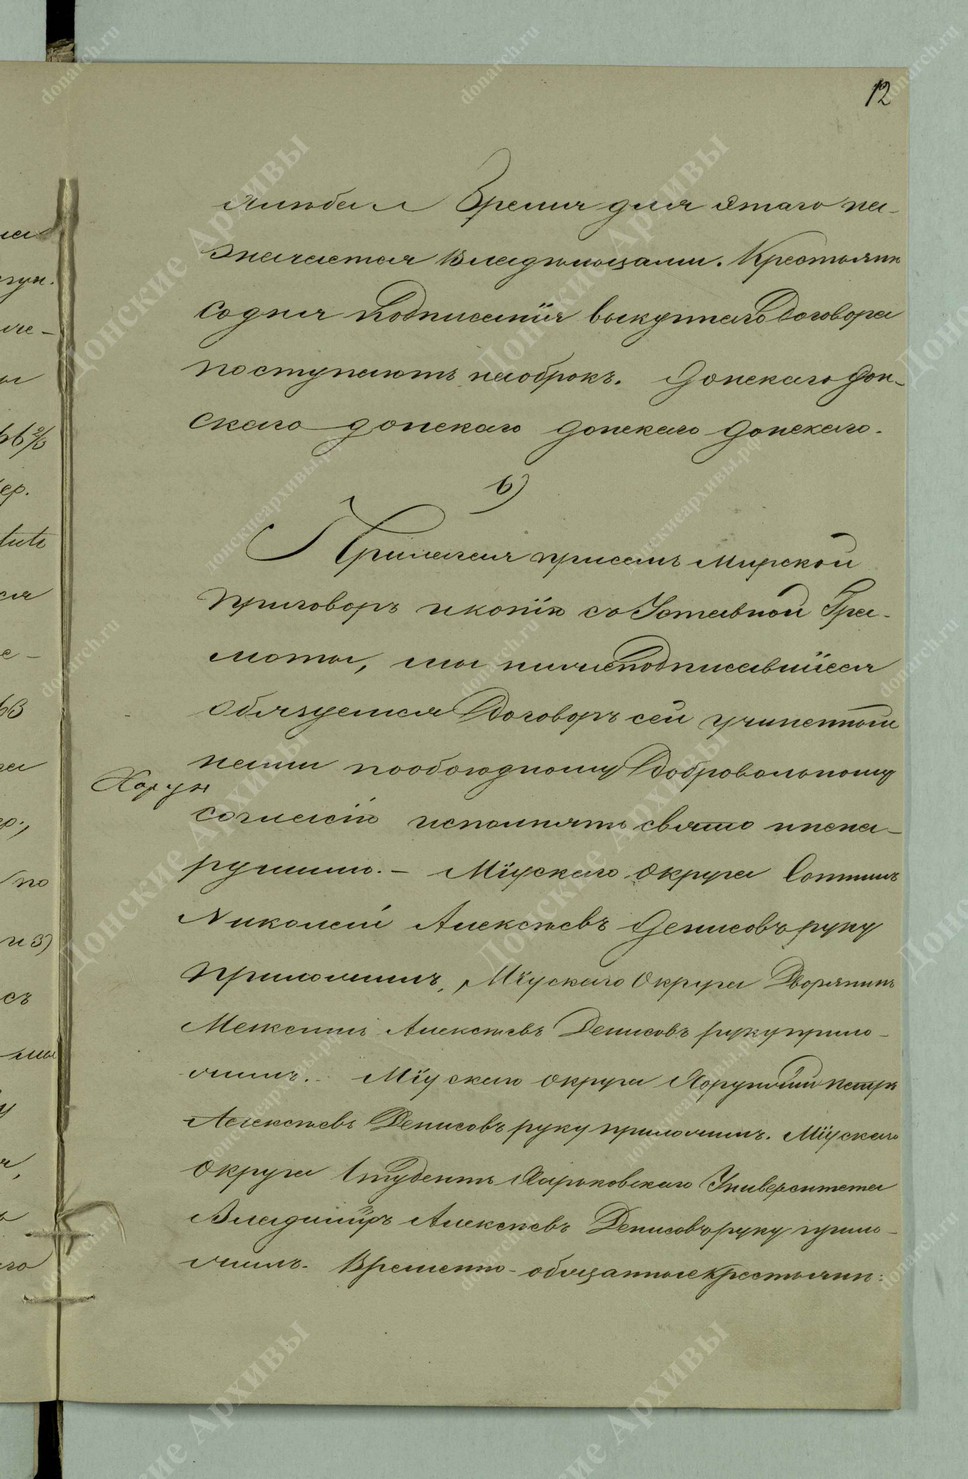 12
Время для этаго на-
значается владельцами. Крестьяне
со дня подписанія выкупнаго Договора
поступаютъ на оброкъ. Донскаго Дон-
скаго донскаго донскаго донскаго.
6)
Прилагая при семъ мирской
приговоръ и копію со Уставной Гра-
моты, мы нижеподписавшіеся
обязуемся Договоръ сей учиненный
нами по обоюдному Добровольному
Хорун
согласію исполнять свято и нена-
рушимо. – Міускаго округа Сотникъ
Николай Алексѣевъ Денисовъ руку
приложилъ, Міускаго Округа Дворянинъ
Максимъ Алексѣевъ Денисовъ руку прило-
жилъ. Міускаго округа Хорунжій Петръ
Алексѣевъ Денисовъ руку приложилъ. Міускаго
округа Студентъ Харьковскаго Университета
Владиміръ Алексѣевъ Денисовъ руку прило-
жилъ. Временно-обязанные крестьяне: